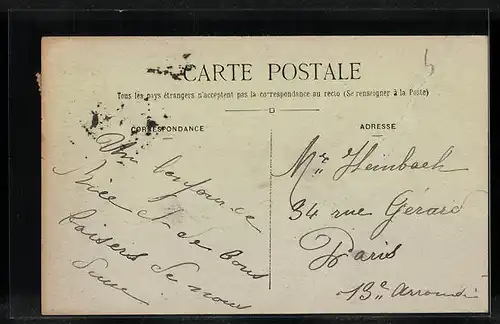 CARTE POSTALE
Tous les pays étrangers n'acceptent pas la correspondance au recto (Se renseigner à la Poste)
CORRESPONDANCE
Un bonjour
et de Bons
baisers de nous
ADRESSE
Mr Heimbach
34 rue Gérard
Paris
13e Arrondi